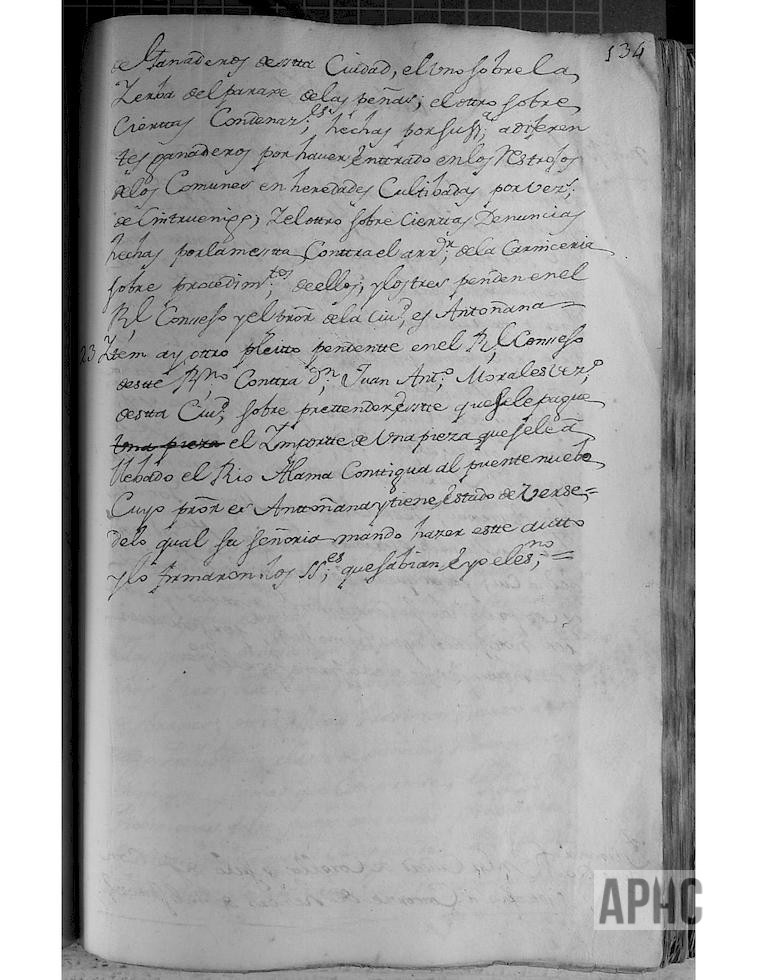 134
de Ganaderos desta Ciudad, el Uno sobre la
Zerba del paraxe delas peñas; el otro sobre
Ciertas Condenaz.es; hechas por su ss.a; a diferen
tes ganaderos por haver Enttrado en los Restrojos
delos Comunes en heredades Cultibadas por vez.s;
de Cintruenigo; Y el otro sobre Ciertas Denuncias
hechas por la mestta Conttra el arr.or; de la Carniceria
sobre procedim.tos; de ellos; y los tres penden en el
R.l Consejo y el pror de la Ciu.d es Antoñana
23 Ytem ay otro pleitto pendentte en el R.l Consejo
deste R.no Contra d.n Juan Ant.o; Morales vez.o;
desta Ciu.d; sobre prettender este que se le pague
Una pieza el Ymporte de Una pieza que se le à
llebado el Rio Alama Conttigua al puente nuebo
Cuyo pror es Anttoñana y tiene Estado de Verse=
delo qual su señoria mando hazer este autto
y lo firmaron los ss.es; que sabian Eyo el es.no; =
APHC